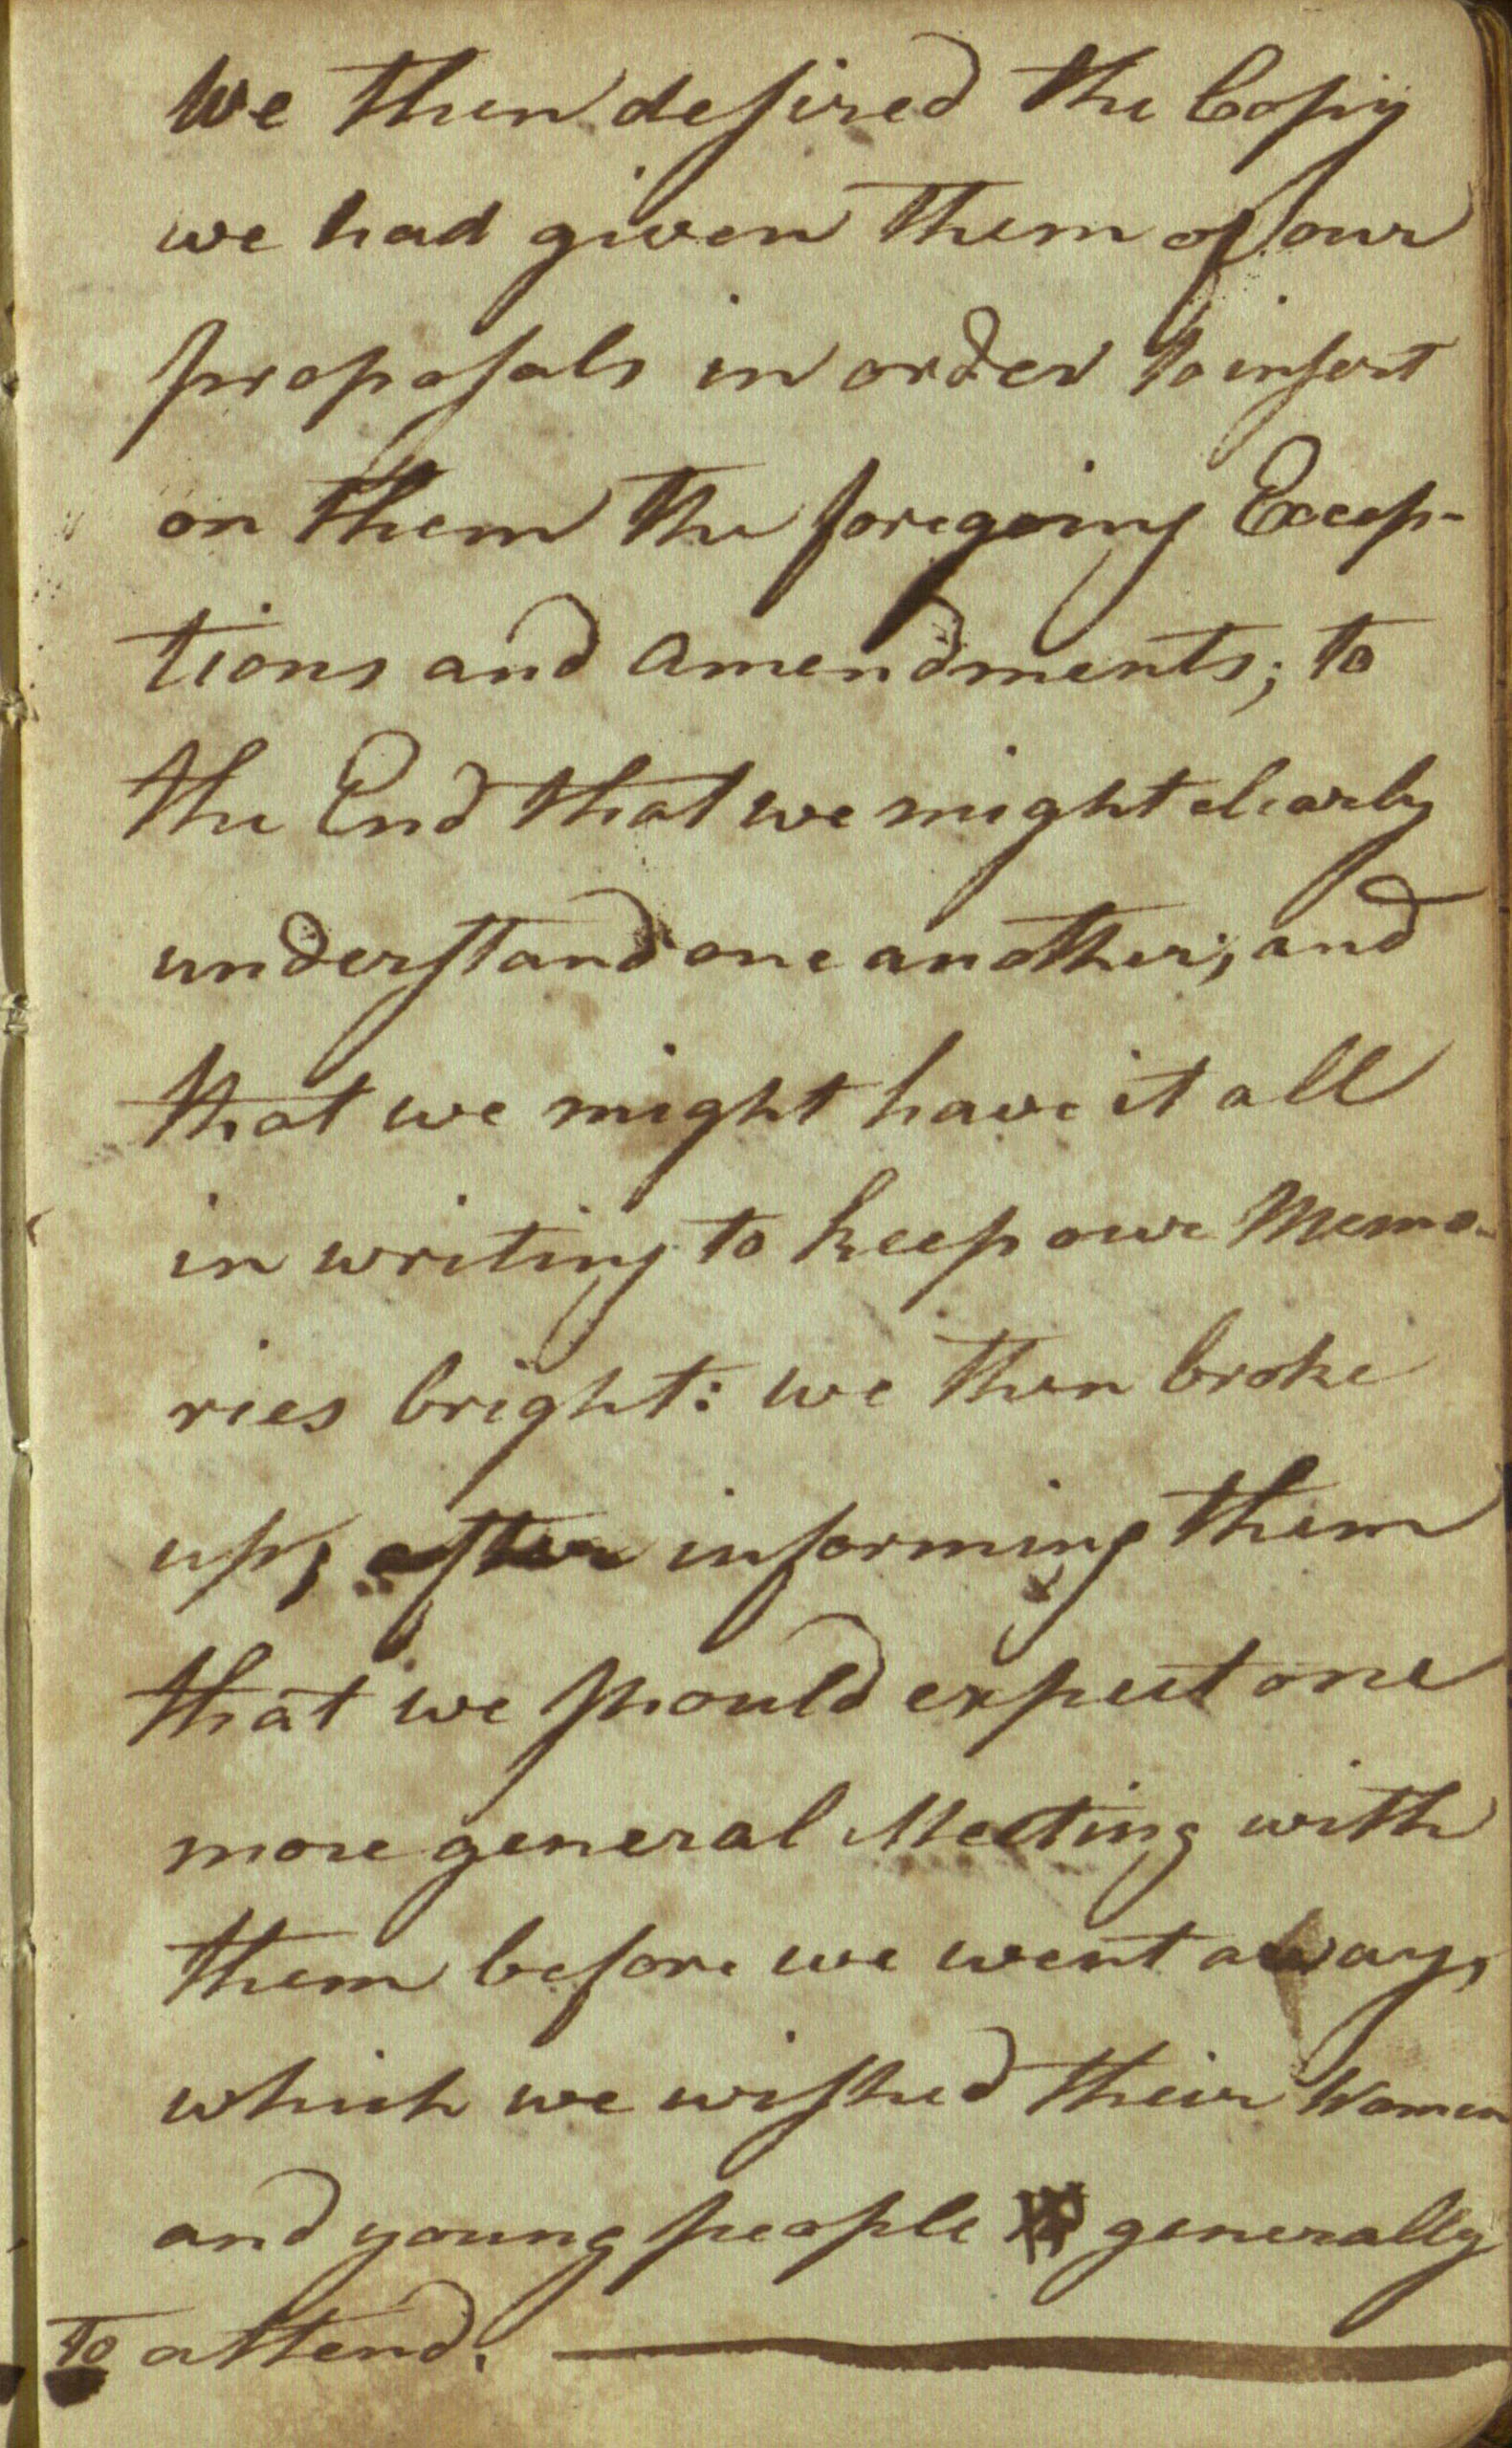 We then desired the Copy
we had given them of our
proposals in order to insert
on them the foregoing Excep-
tions and Amendments; to
the End that we might clearly
understand one another; and
that we might have it all
in writing to keep our Memo-
ries bright: we then broke
up, after informing them
that we should expect one
more general Meeting with
them before we went away,
which we wished their Women
and young people generally
to attend.